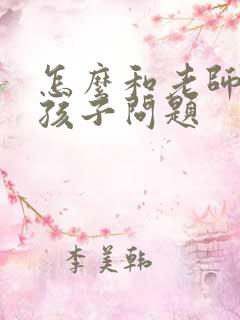 怎麼和老師
孩子問題
李美韓